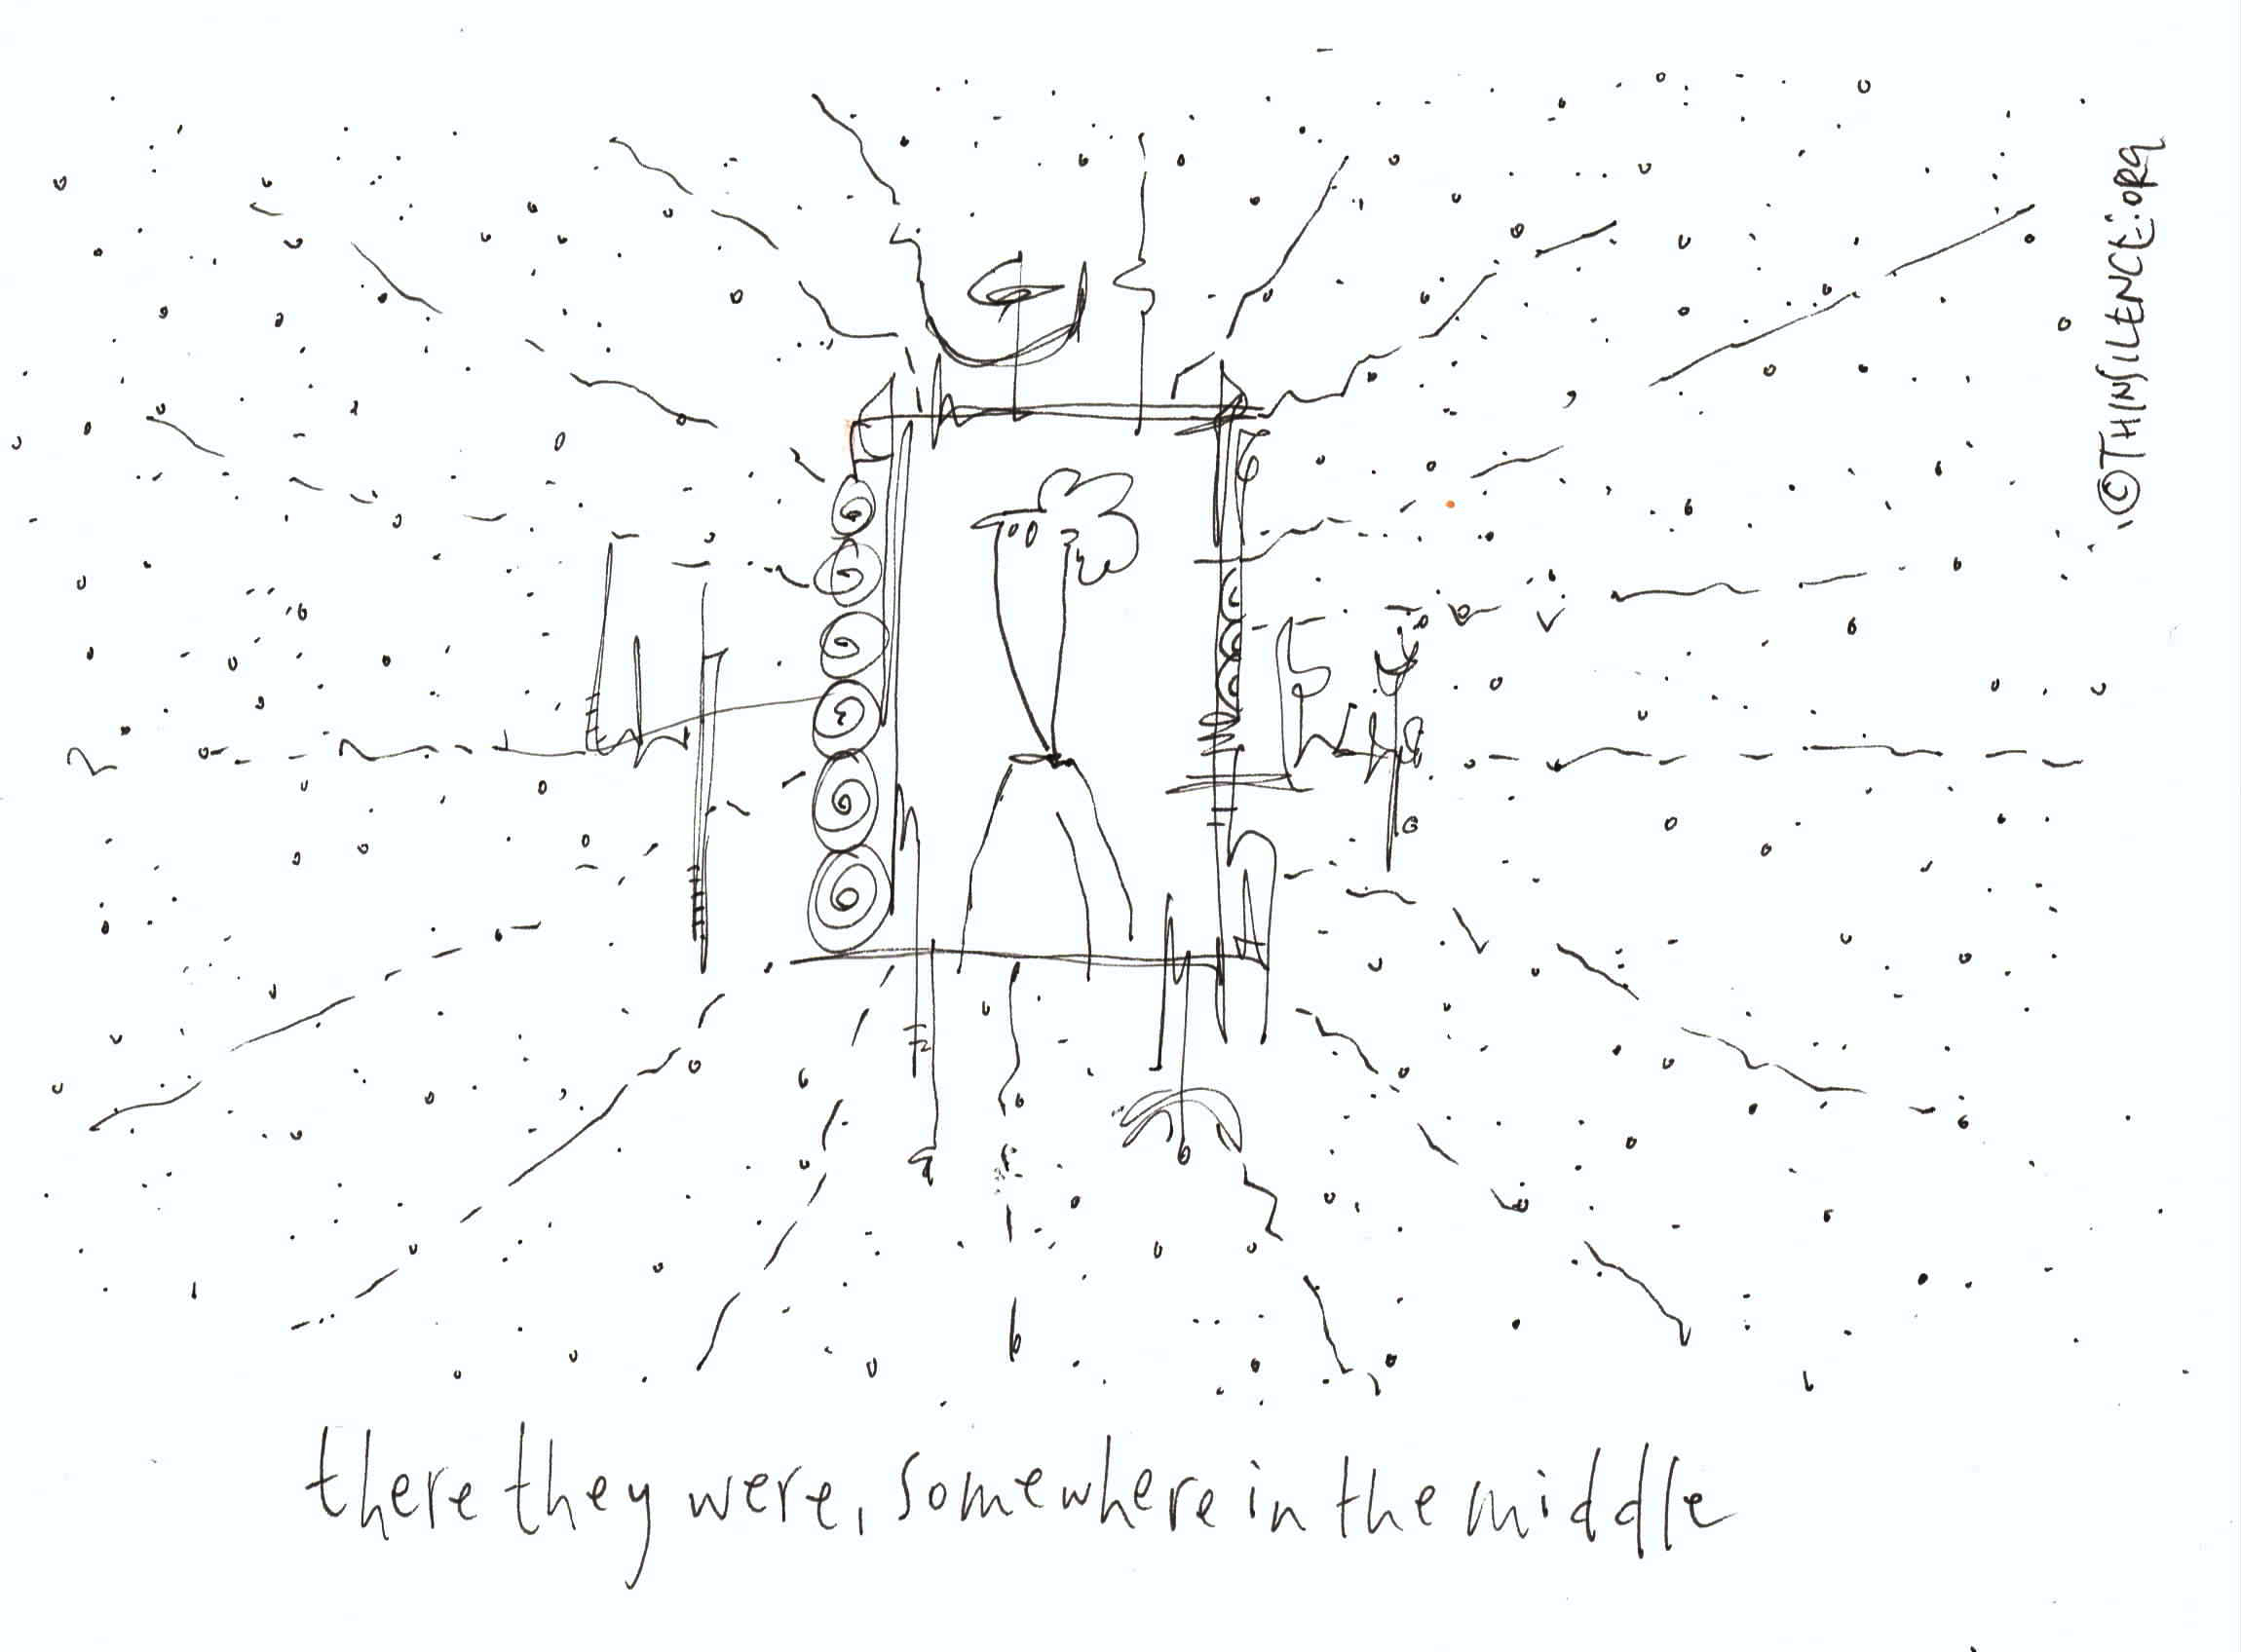 ©THINSILENCE.ORG
there they were, somewhere in the middle